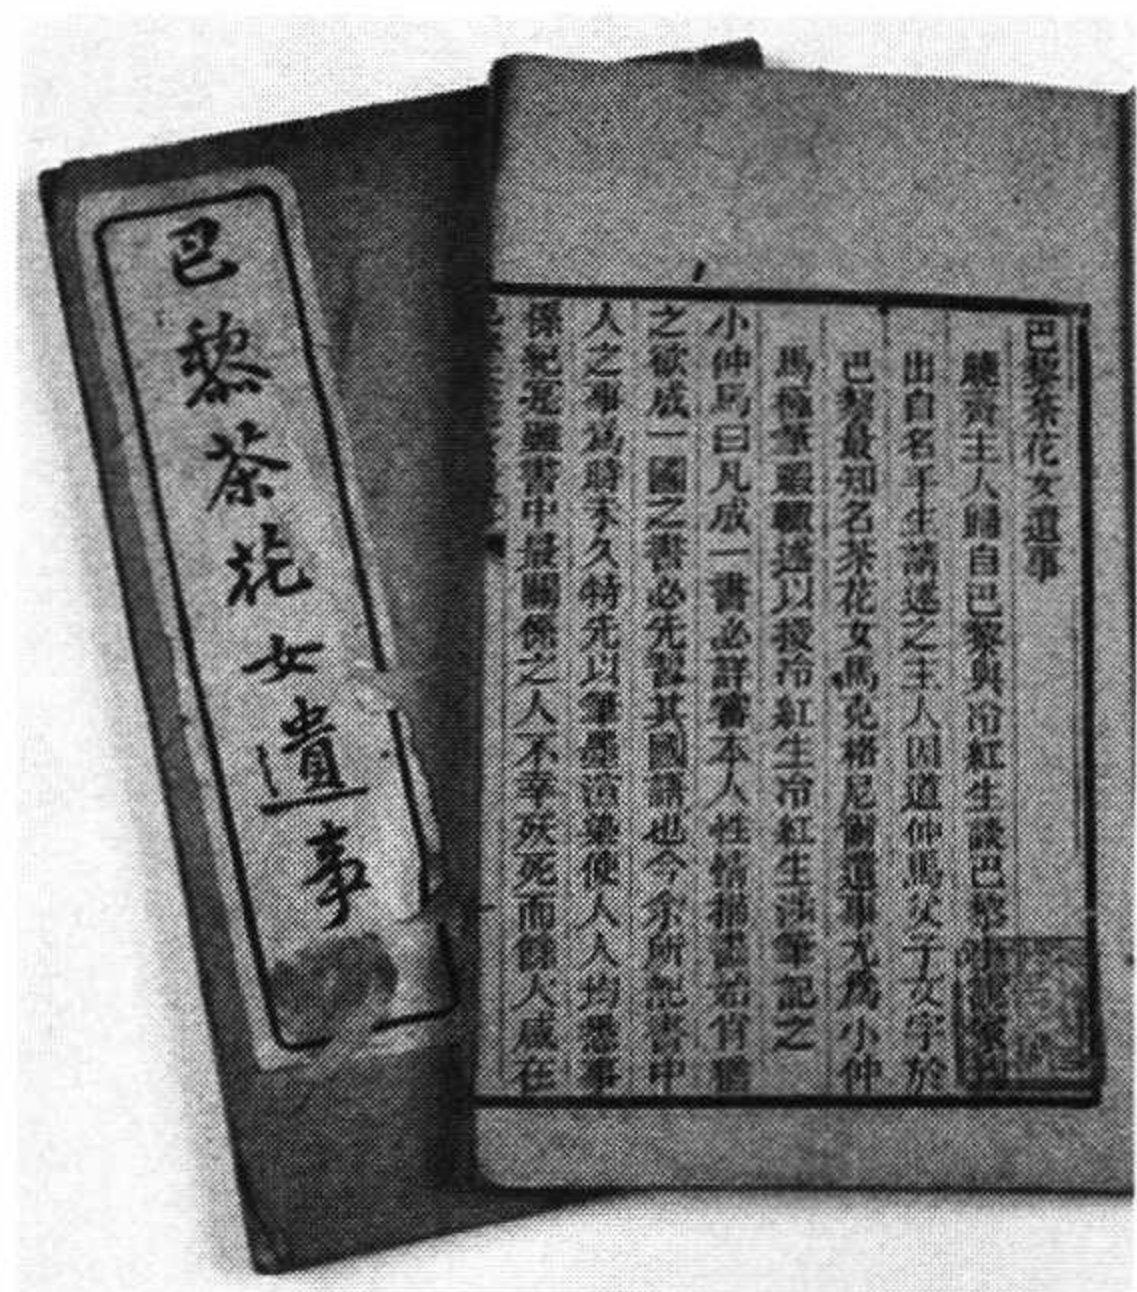 巴黎茶花女遺事
巴黎茶花女遺事
曉齋主人歸自巴黎與冷紅生談巴黎小說家均
出自名手生請述之主人因道仲馬父子文字於
巴黎最知名茶花女馬克格尼爾遺事尤爲小仲
馬極筆暇輒述以授冷紅生冷紅生涉筆記之
小仲馬曰凡成一書必詳審本人性情描畫始肖猶
之欲成一國之書必先習其國語也今余所記書中
人之事爲時未久特先以筆墨渲染使人人均悉事
係紀實雖書中最關係之人不幸殀死而餘人咸在